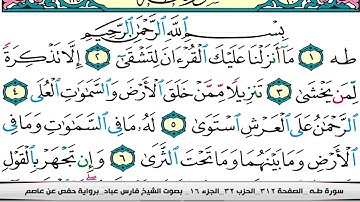 بِسْمِ ٱللَّهِ ٱلرَّحْمَٰنِ ٱلرَّحِيمِ
طه ١ مَآ أَنزَلْنَا عَلَيْكَ ٱلْقُرْءَانَ لِتَشْقَىٰٓ ٢ إِلَّا تَذْكِرَةً
لِّمَن يَخْشَىٰ ٣ تَنزِيلًا مِّمَّنْ خَلَقَ ٱلْأَرْضَ وَٱلسَّمَٰوَٰتِ ٱلْعُلَى ٤
ٱلرَّحْمَٰنُ عَلَى ٱلْعَرْشِ ٱسْتَوَىٰ ٥ لَهُۥ مَا فِى ٱلسَّمَٰوَٰتِ وَمَا فِى
ٱلْأَرْضِ وَمَا بَيْنَهُمَا وَمَا تَحْتَ ٱلثَّرَىٰ ٦ وَإِن تَجْهَرْ بِٱلْقَوْلِ
سورة طـه _ الصفحة ٣١٢ _ الحزب ٣٢ _ الجزء ١٦ _ بصوت الشيخ فارس عباد _ برواية حفص عن عاصم